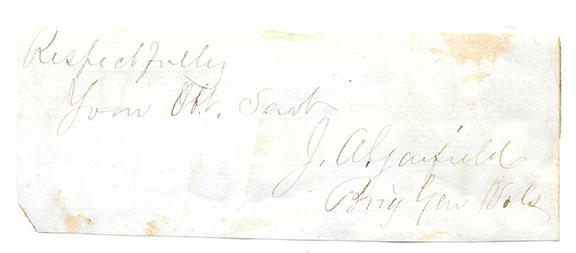 Respectfully
Your Obt. Servt
J. A. Garfield
Brig Gen Vols